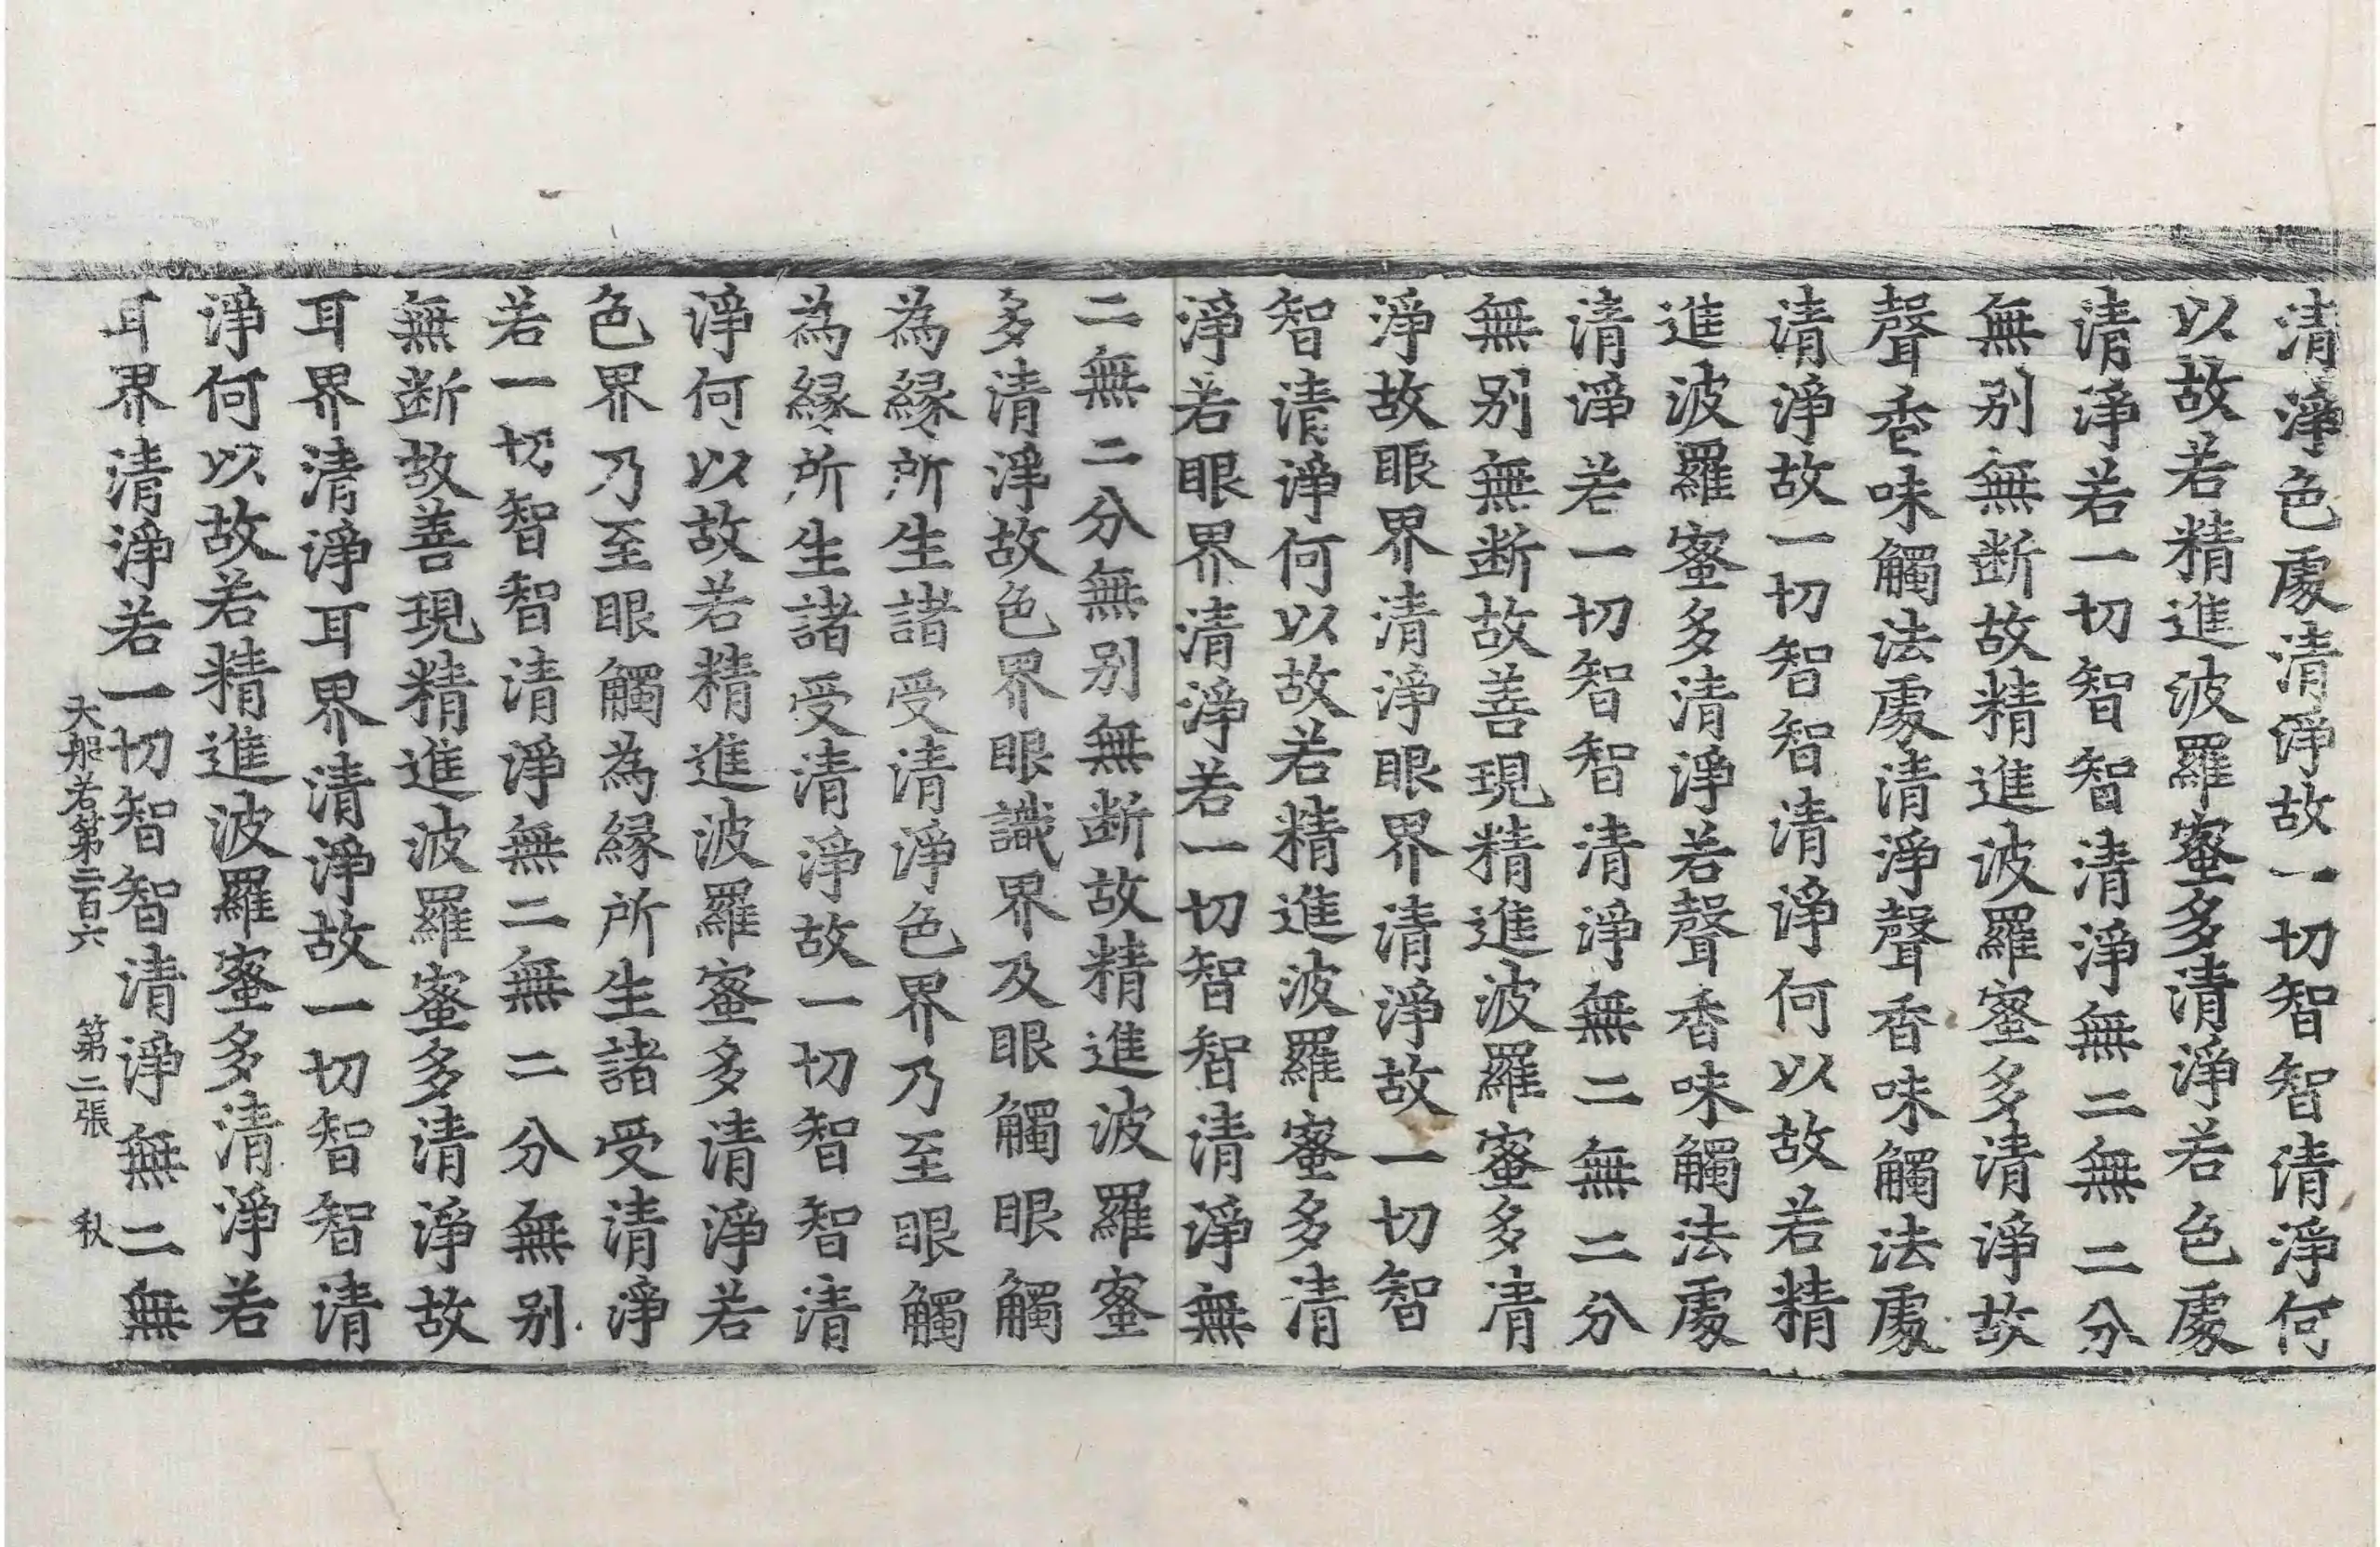 清淨色處清淨故一切智智清淨何
以故若精進波羅蜜多清淨若色處
清淨若一切智智清淨無二無二分
無别無断故精進波羅蜜多清淨故
聲香味觸法處清淨聲香味觸法處
清淨故一切智智清淨何以故若精
進波羅蜜多清淨若聲香味觸法處
清淨若一切智智清淨無二無二分
無别無断故善現精進波羅蜜多清
淨故眼界清淨眼界清淨故一切智
智清淨何以故若精進波羅蜜多清
淨若眼界清淨若一切智智清淨無
二無二分無别無断故精進波羅蜜
多清淨故色界眼識界及眼觸眼觸
為縁所生諸受清淨色界乃至眼觸
為縁所生諸受清淨故一切智智清
淨何以故若精進波羅蜜多清淨若
色界乃至眼觸為縁所生諸受清淨
若一切智智清淨無二無二分無别
無断故善現精進波羅蜜多清淨故
耳界清淨耳界清淨故一切智智清
淨何以故若精進波羅蜜多清淨若
耳界清淨若一切智智清淨無二無
大般若第二百六 第二張 秋